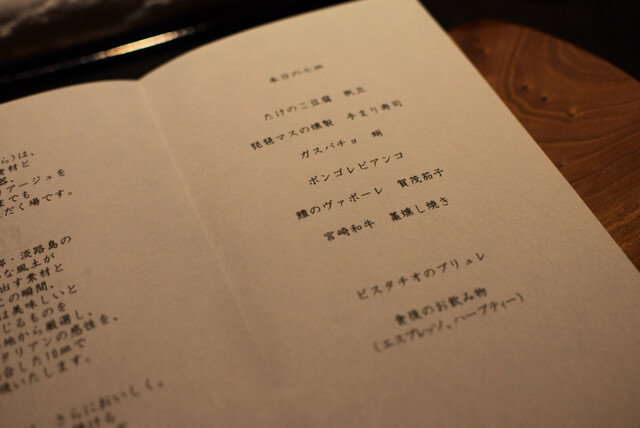 ら)は、
食材と
アージュを
までも
だく場です。
・淡路島の
な風土が
出す素材と
の瞬間、
は美味しいと
じるものを
地から厳選し、
タリアンの感性を、
合した10皿で
いたします。
さらにおいしく。
本日の七皿
たけのこ豆腐 帆立
琵琶マスの燻製 手まり寿司
ガスパチョ 蛸
ボンゴレビアンコ
鱧のヴァポーレ 賀茂茄子
宮崎和牛 藁燻し焼き
ピスタチオのブリュレ
食後のお飲み物
(エスプレッソ、ハーブティー)